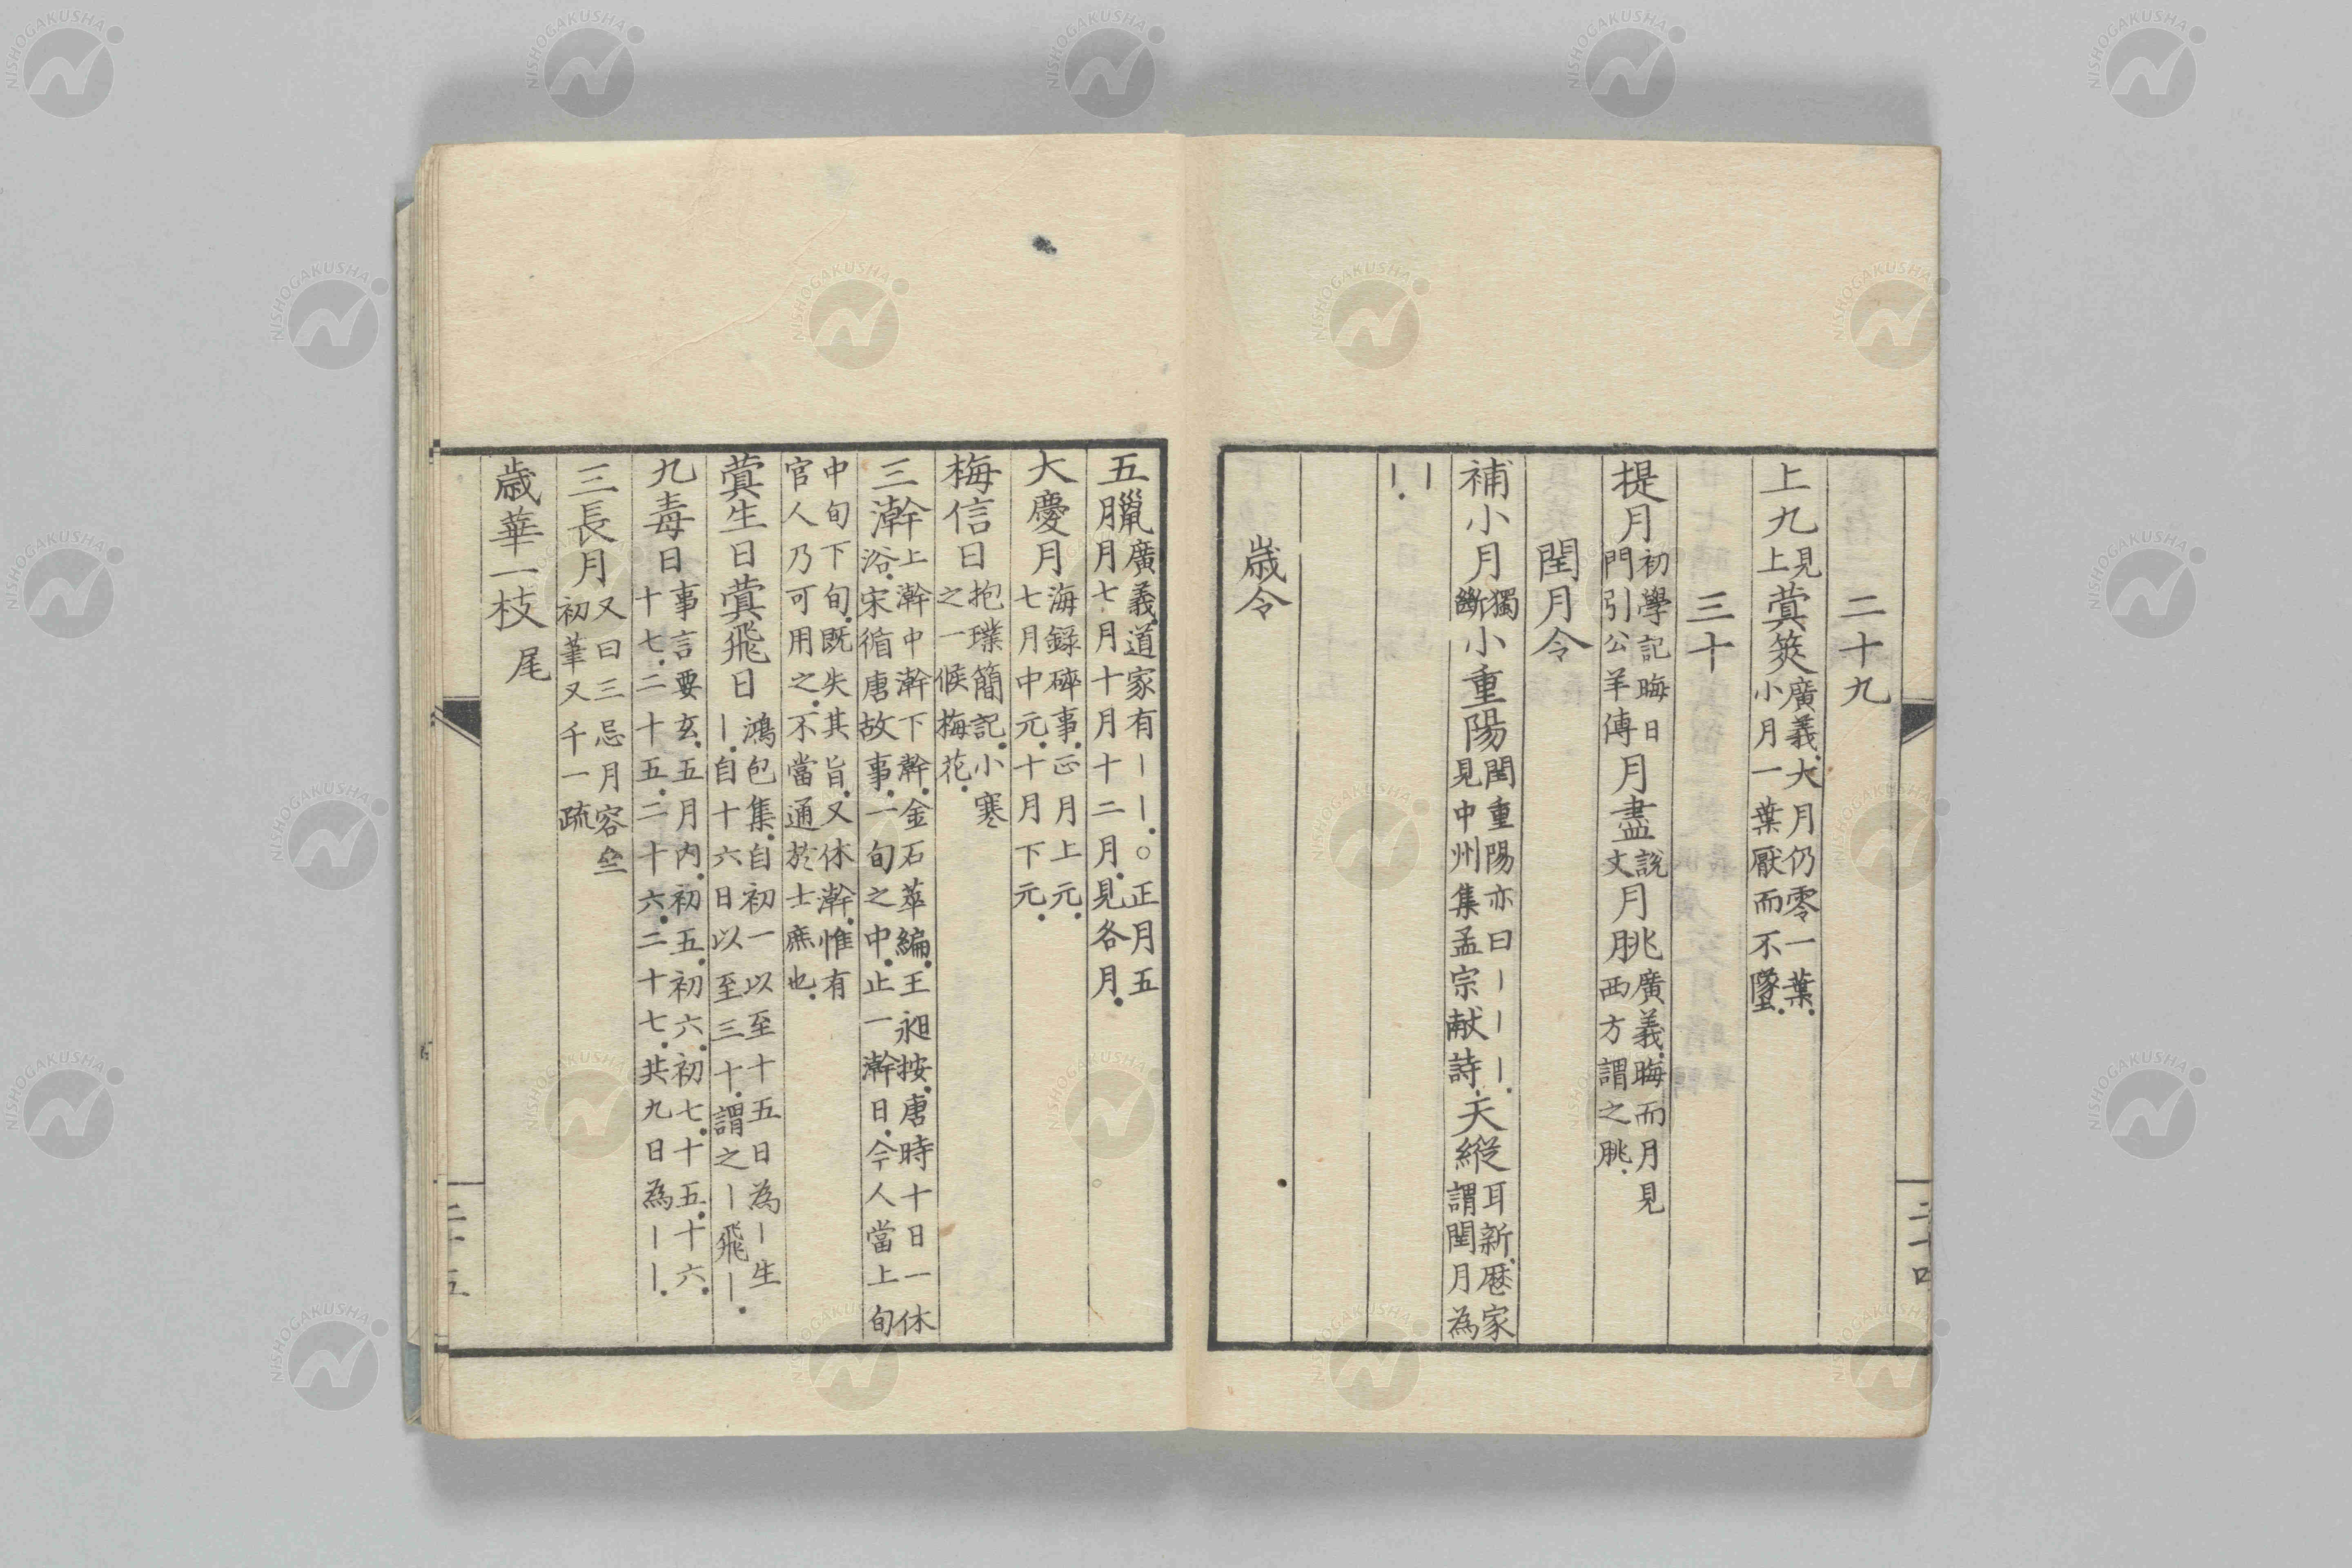 二十九
上九見上蓂筴廣義大月仍零一葉小月一葉厭而不墜
三十
提月初學記晦日門引公羊傳月盡說文月朓廣義晦而月見西方謂之朓
閏月令
補小月獨斷小重陽閏重陽亦曰丨丨丨見中州集孟宗献詩天縱耳新曆家謂閏月為
丨丨
歲令
二十四
五臘廣義道家有丨丨○正月五月七月十月十二月見各月
大慶月海録碎事正月上元七月中元十月下元
梅信日抱璞簡記小寒之一候梅花
三澣上澣中澣下澣金石萃編王昶按唐時十日一休浴宋循唐故事一旬之中止一澣日今人當上旬
中旬下旬既失其旨又休澣惟有官人乃可用之不當通於士庶也
蓂生日蓂飛日鴻包集自初一以至十五日為丨生丨自十六日以至三十謂之丨飛丨
九毒日事言要玄五月内初五初六初七十五十六十七二十五二十六二十七共九日為丨丨
三長月又曰三忌月容初筆又千一疏
歲華一枝 尾
二十五
NISHOGAKUSHA